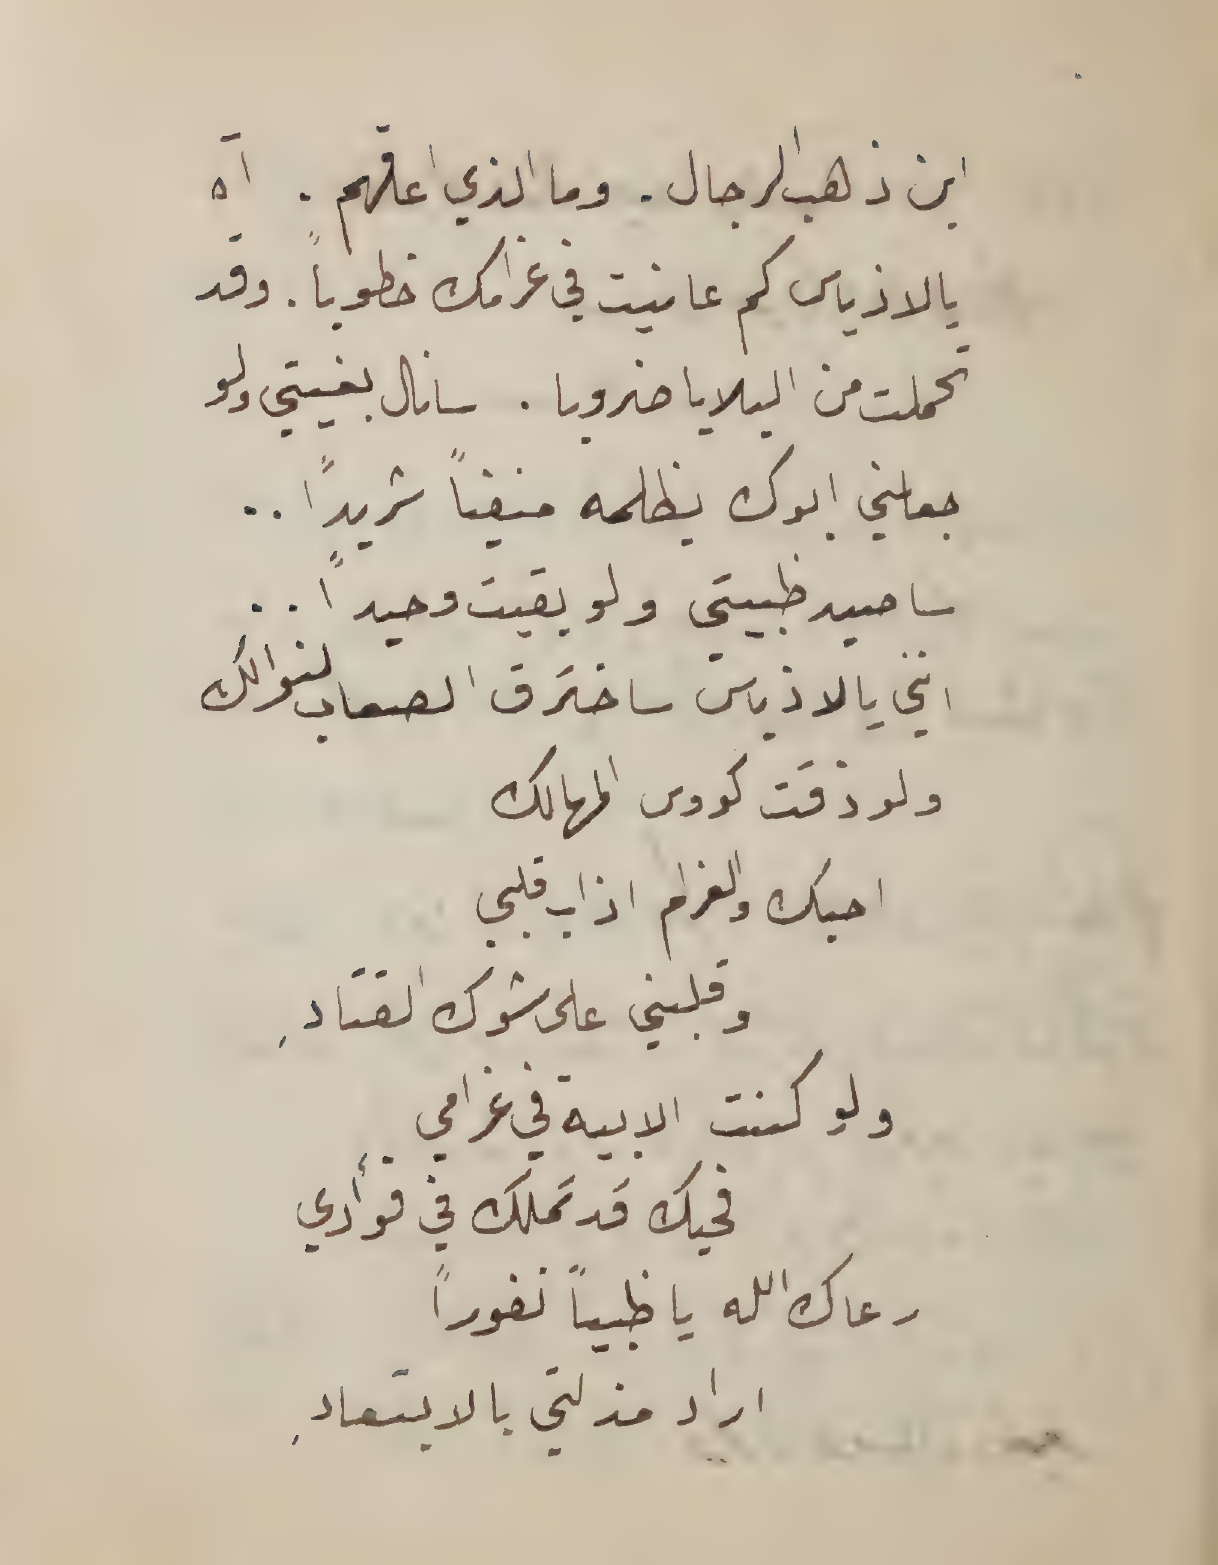 اين ذهب الرجال . وما الذي اعاقهم . آه
يا لاذياس كم عانيت في غرامك خطوباً . وقد
تحملت من البلايا ضروبا . سانال بغيتي ولو
جعلني ابوك بظلمه منفياً شريداً ..
ساصيد ظبيتي ولو بقيت وحيداً ..
انني يا لاذياس ساخترق الصعاب لنوالك
ولو ذقت كووس المهالك
احبك والغرام اذاب قلبي
وقلبني على شوك القتادِ
ولو كنت الابية في غرامي
فحبك قد تملك في فؤادي
رعاك الله يا ظبياً نفوراً
اراد مذلتي بالابتعادِ